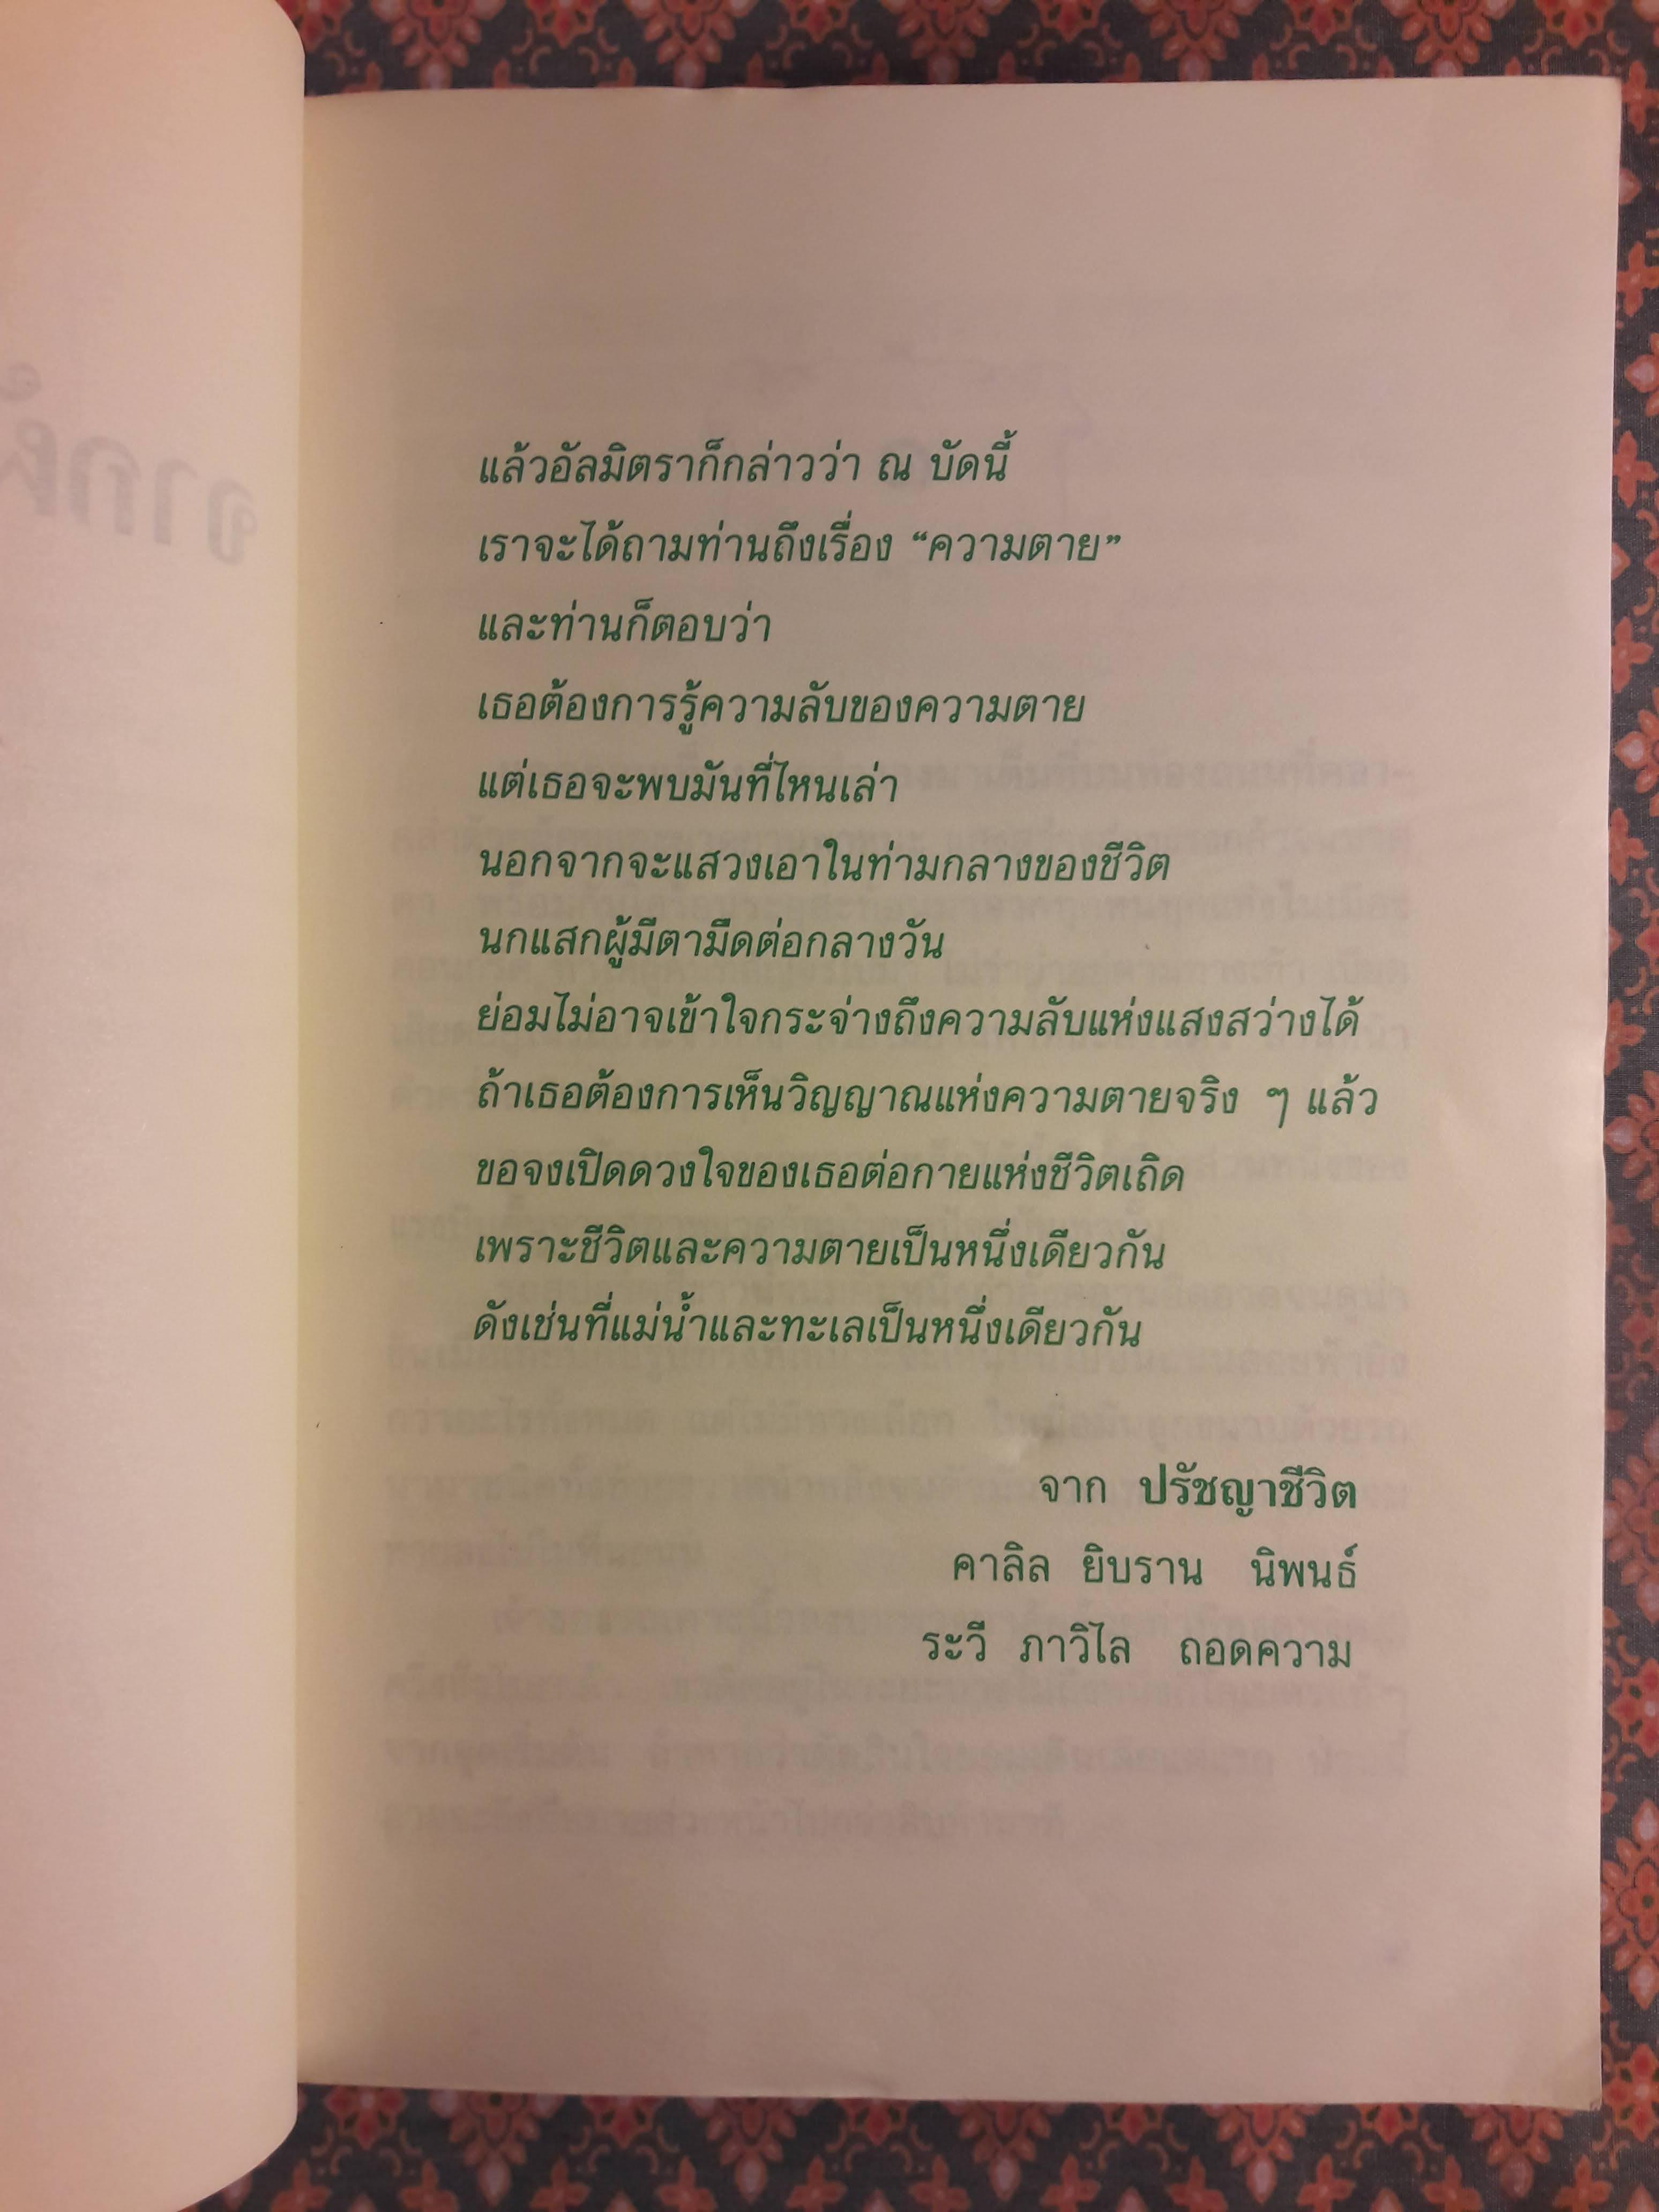 แล้วอัลมิตราก็กล่าวว่า ณ บัดนี้
เราจะได้ถามท่านถึงเรื่อง “ความตาย”
และท่านก็ตอบว่า
เธอต้องการรู้ความลับของความตาย
แต่เธอจะพบมันที่ไหนเล่า
นอกจากจะแสวงเอาในท่ามกลางของชีวิต
นกแสกผู้มีตามืดต่อกลางวัน
ย่อมไม่อาจเข้าใจกระจ่างถึงความลับแห่งแสงสว่างได้
ถ้าเธอต้องการเห็นวิญญาณแห่งความตายจริง ๆ แล้ว
ขอจงเปิดดวงใจของเธอต่อกายแห่งชีวิตเถิด
เพราะชีวิตและความตายเป็นหนึ่งเดียวกัน
ดังเช่นที่แม่น้ำและทะเลเป็นหนึ่งเดียวกัน
จาก ปรัชญาชีวิต
คาลิล ยิบราน นิพนธ์
ระวี ภาวิไล ถอดความ